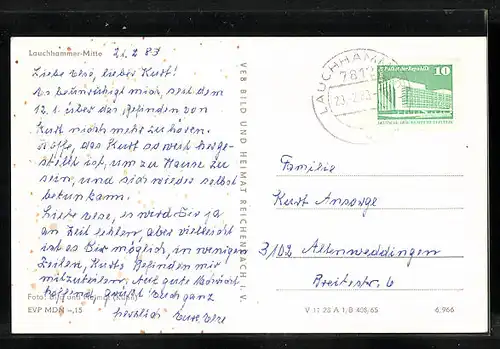 Lauchhammer-Mitte
21.2.83
Liebe Rese, lieber Kurt!
Es beunruhigt mich, seit dem
12.1. über das Befinden von
Kurt nichts mehr zu hören.
Hoffe, das Kurt so weit herge-
stellt ist, um zu Hause zu
sein, und sich wieder selbst
bekunkann.
Liebe Rese, es wird Dir ja
an Zeit fehlen, aber vielleicht
ist es Dir möglich, in wenigen
Zeilen, Kurts Befinden mir
mitzuteilen. Auf gute Nachricht
hoffend, grüßt Euch ganz
herzlich Eure
Foto: Bild und Heimat
EVP MDN –,15
VEB BILD UND HEIMAT REICHENBACH I. V.
LAUCHHAMMER
7812
Palast der Republik
10
Familie
Kurt Ansorge
3102 Altenweddingen
Breitestr. 6
V 11 28 A 1/B 408/65
6.966